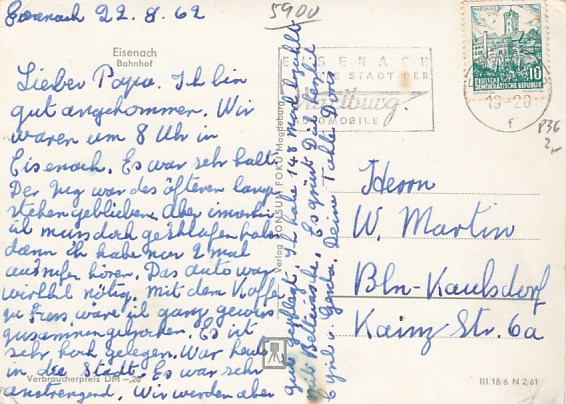 Eisenach 22.8.62
5900
Eisenach
Bahnhof
Lieber Papa. Ich bin
gut angekommen. Wir
waren um 8 Uhr in
Eisenach. Es war sehr kalt.
Der Zug war des öfteren lange
stehengeblieben. Aber
ich muss doch geschlafen haben
denn ich habe nur 2 mal
ausrufen hören. Das Auto war
wirklich nötig. Mit dem Koffer
zu Fuss wäre ich ganz gewiss
zusammengebrochen. Es ist
sehr hoch gelegen. War heute
in die Stadt. Es war sehr
anstrengend. Wir werden aber
gut gepflegt. Ich habe 148 Mark bezahlt
mit Bettwäsche. Es grüßt Dich herzlich
u. Gerda. Deine Doris
Verbraucherpreis DM -,20
Verlag KONSUM FOKU Magdeburg
EISENACH
STADT DER
Wartburg
AUTOMOBILE
WARTBURG
10
DEUTSCHE
DEMOKRATISCHE REPUBLIK
-20
f
836
2,-
Herrn
W. Martin
Bln-Kaulsdorf
Kainz Str. 6a
III 18 6 N 2/61